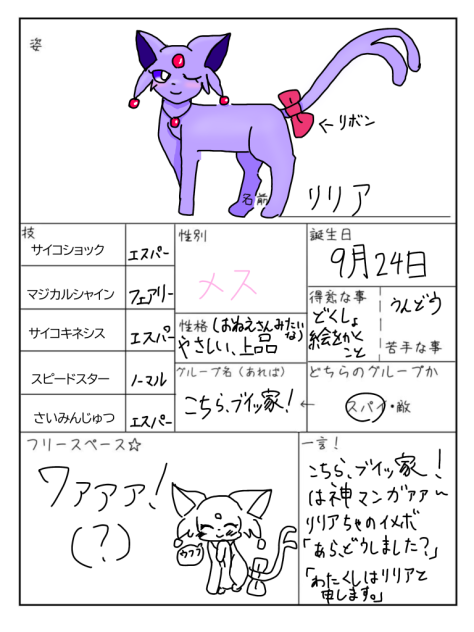 姿
←リボン
名前 リリア
技
サイコショック エスパー
マジカルシャイン フェアリー
サイコキネシス エスパー
スピードスター ノーマル
さいみんじゅつ エスパー
性別
メス
誕生日
9月24日
性格(おねえさんみたいな)
やさしい、上品
得意な事
どくしょ
絵をかく
こと
うんどう
苦手な事
グループ名(あれば)
こちら、ブイッ家!
←
どちらのグループか
スパイ・敵
フリースペース☆
ワァァァ!
(?)
ウフフ
一言!
こちら、ブイッ家!
は神マンガァァ〜
リリアちゃのイメボ
「あら、どうしました?」
「わたくしはリリアと
申します。」